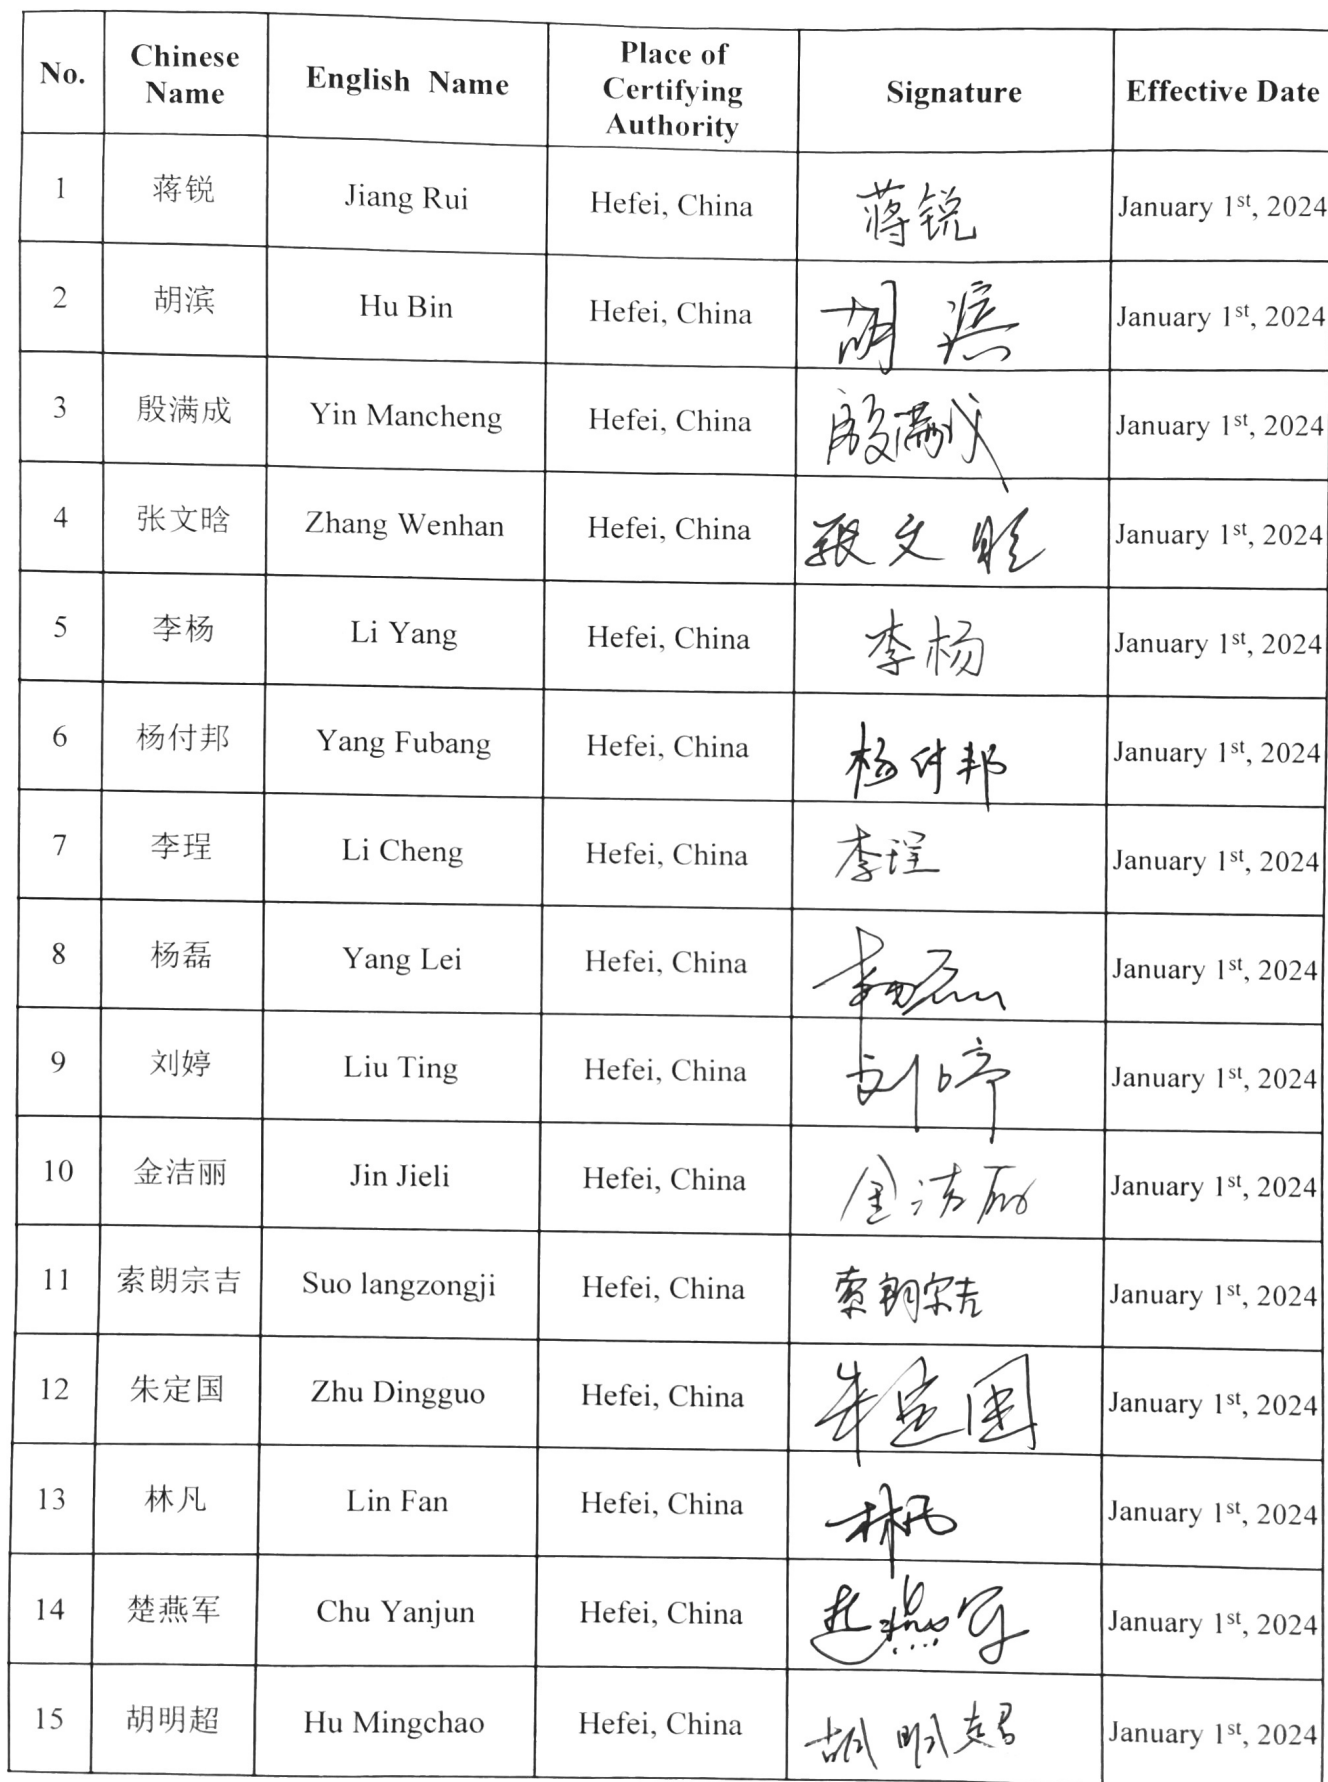 No. Chinese Name English Name Place of Certifying Authority Signature Effective Date
1 蒋锐 Jiang Rui Hefei, China 蒋锐 January 1st, 2024
2 胡滨 Hu Bin Hefei, China 胡滨 January 1st, 2024
3 殷满成 Yin Mancheng Hefei, China 殷满成 January 1st, 2024
4 张文晗 Zhang Wenhan Hefei, China 张文晗 January 1st, 2024
5 李杨 Li Yang Hefei, China 李杨 January 1st, 2024
6 杨付邦 Yang Fubang Hefei, China 杨付邦 January 1st, 2024
7 李珵 Li Cheng Hefei, China 李珵 January 1st, 2024
8 杨磊 Yang Lei Hefei, China 杨磊 January 1st, 2024
9 刘婷 Liu Ting Hefei, China 刘婷 January 1st, 2024
10 金洁丽 Jin Jieli Hefei, China 金洁丽 January 1st, 2024
11 索朗宗吉 Suo langzongji Hefei, China 索朗宗吉 January 1st, 2024
12 朱定国 Zhu Dingguo Hefei, China 朱定国 January 1st, 2024
13 林凡 Lin Fan Hefei, China 林凡 January 1st, 2024
14 楚燕军 Chu Yanjun Hefei, China 楚燕军 January 1st, 2024
15 胡明超 Hu Mingchao Hefei, China 胡明超 January 1st, 2024